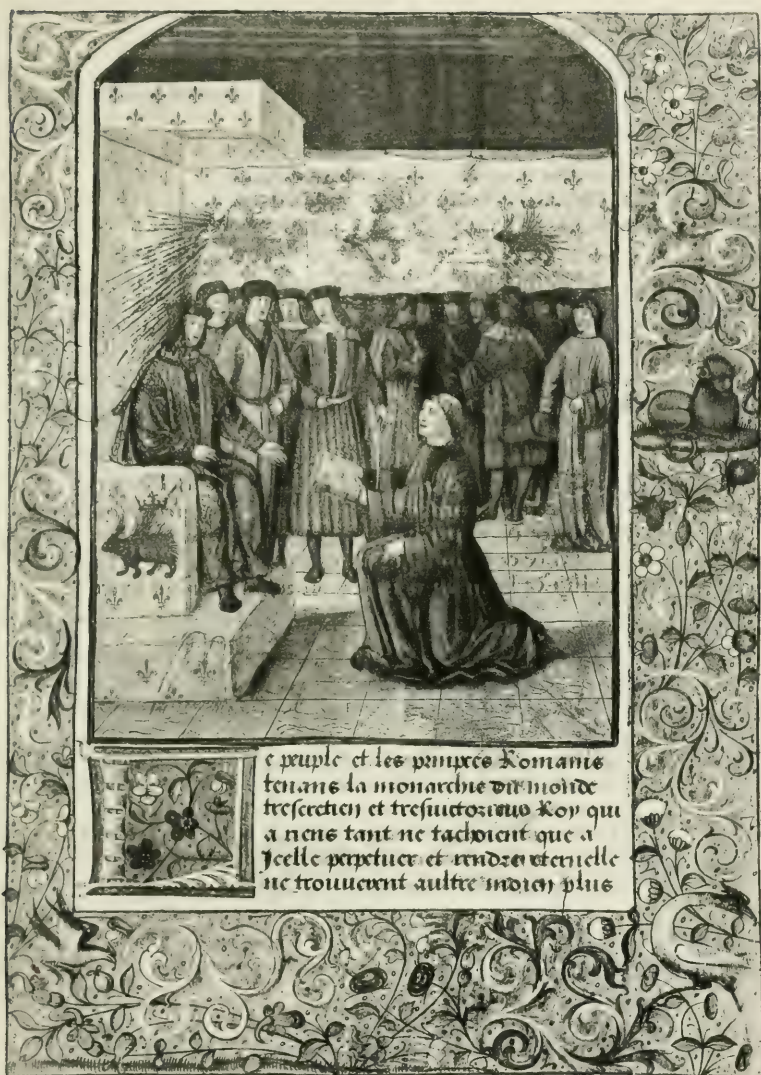 Le peuple et les princes Romains
tenans la monarchie du monde
trescretien et tresvictorieux Roy qui
a riens tant ne tachoient que a
Icelle perpetuer et rendre eternelle
ne trouverent aultre moien plus